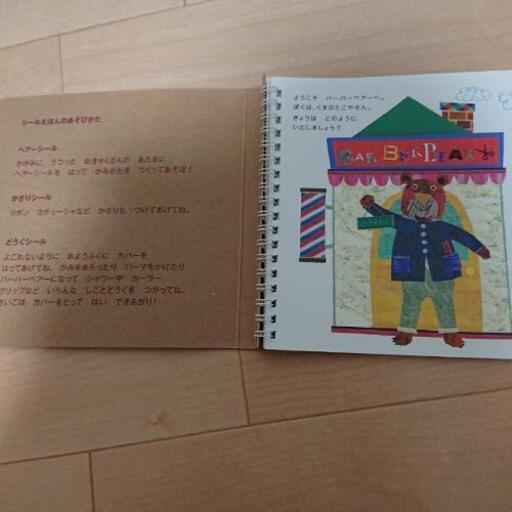 シールえほんのあそびかた
ヘアーシール
かがみに うつった おきゃくさんの あたまに
ヘアーシールを はって かみがたを つくってあそぼ!
かざりシール
リボン カチューシャなど かざりも つけてあげてね。
どうぐシール
よごれないように おようふくに カバーを
はってあげてね。 かみをあらったり パーマをかけたり
バーバーベアーになって シャワーや カーラー
クリップなど いろんな しごとどうぐを つかってね。
さいごは カバーをとって はい できあがり!
ようこそ バーバーベアーへ。
ぼくは、くまのとこやさん。
きょうは どのように
いたしましょう?
BAR BER BEAR